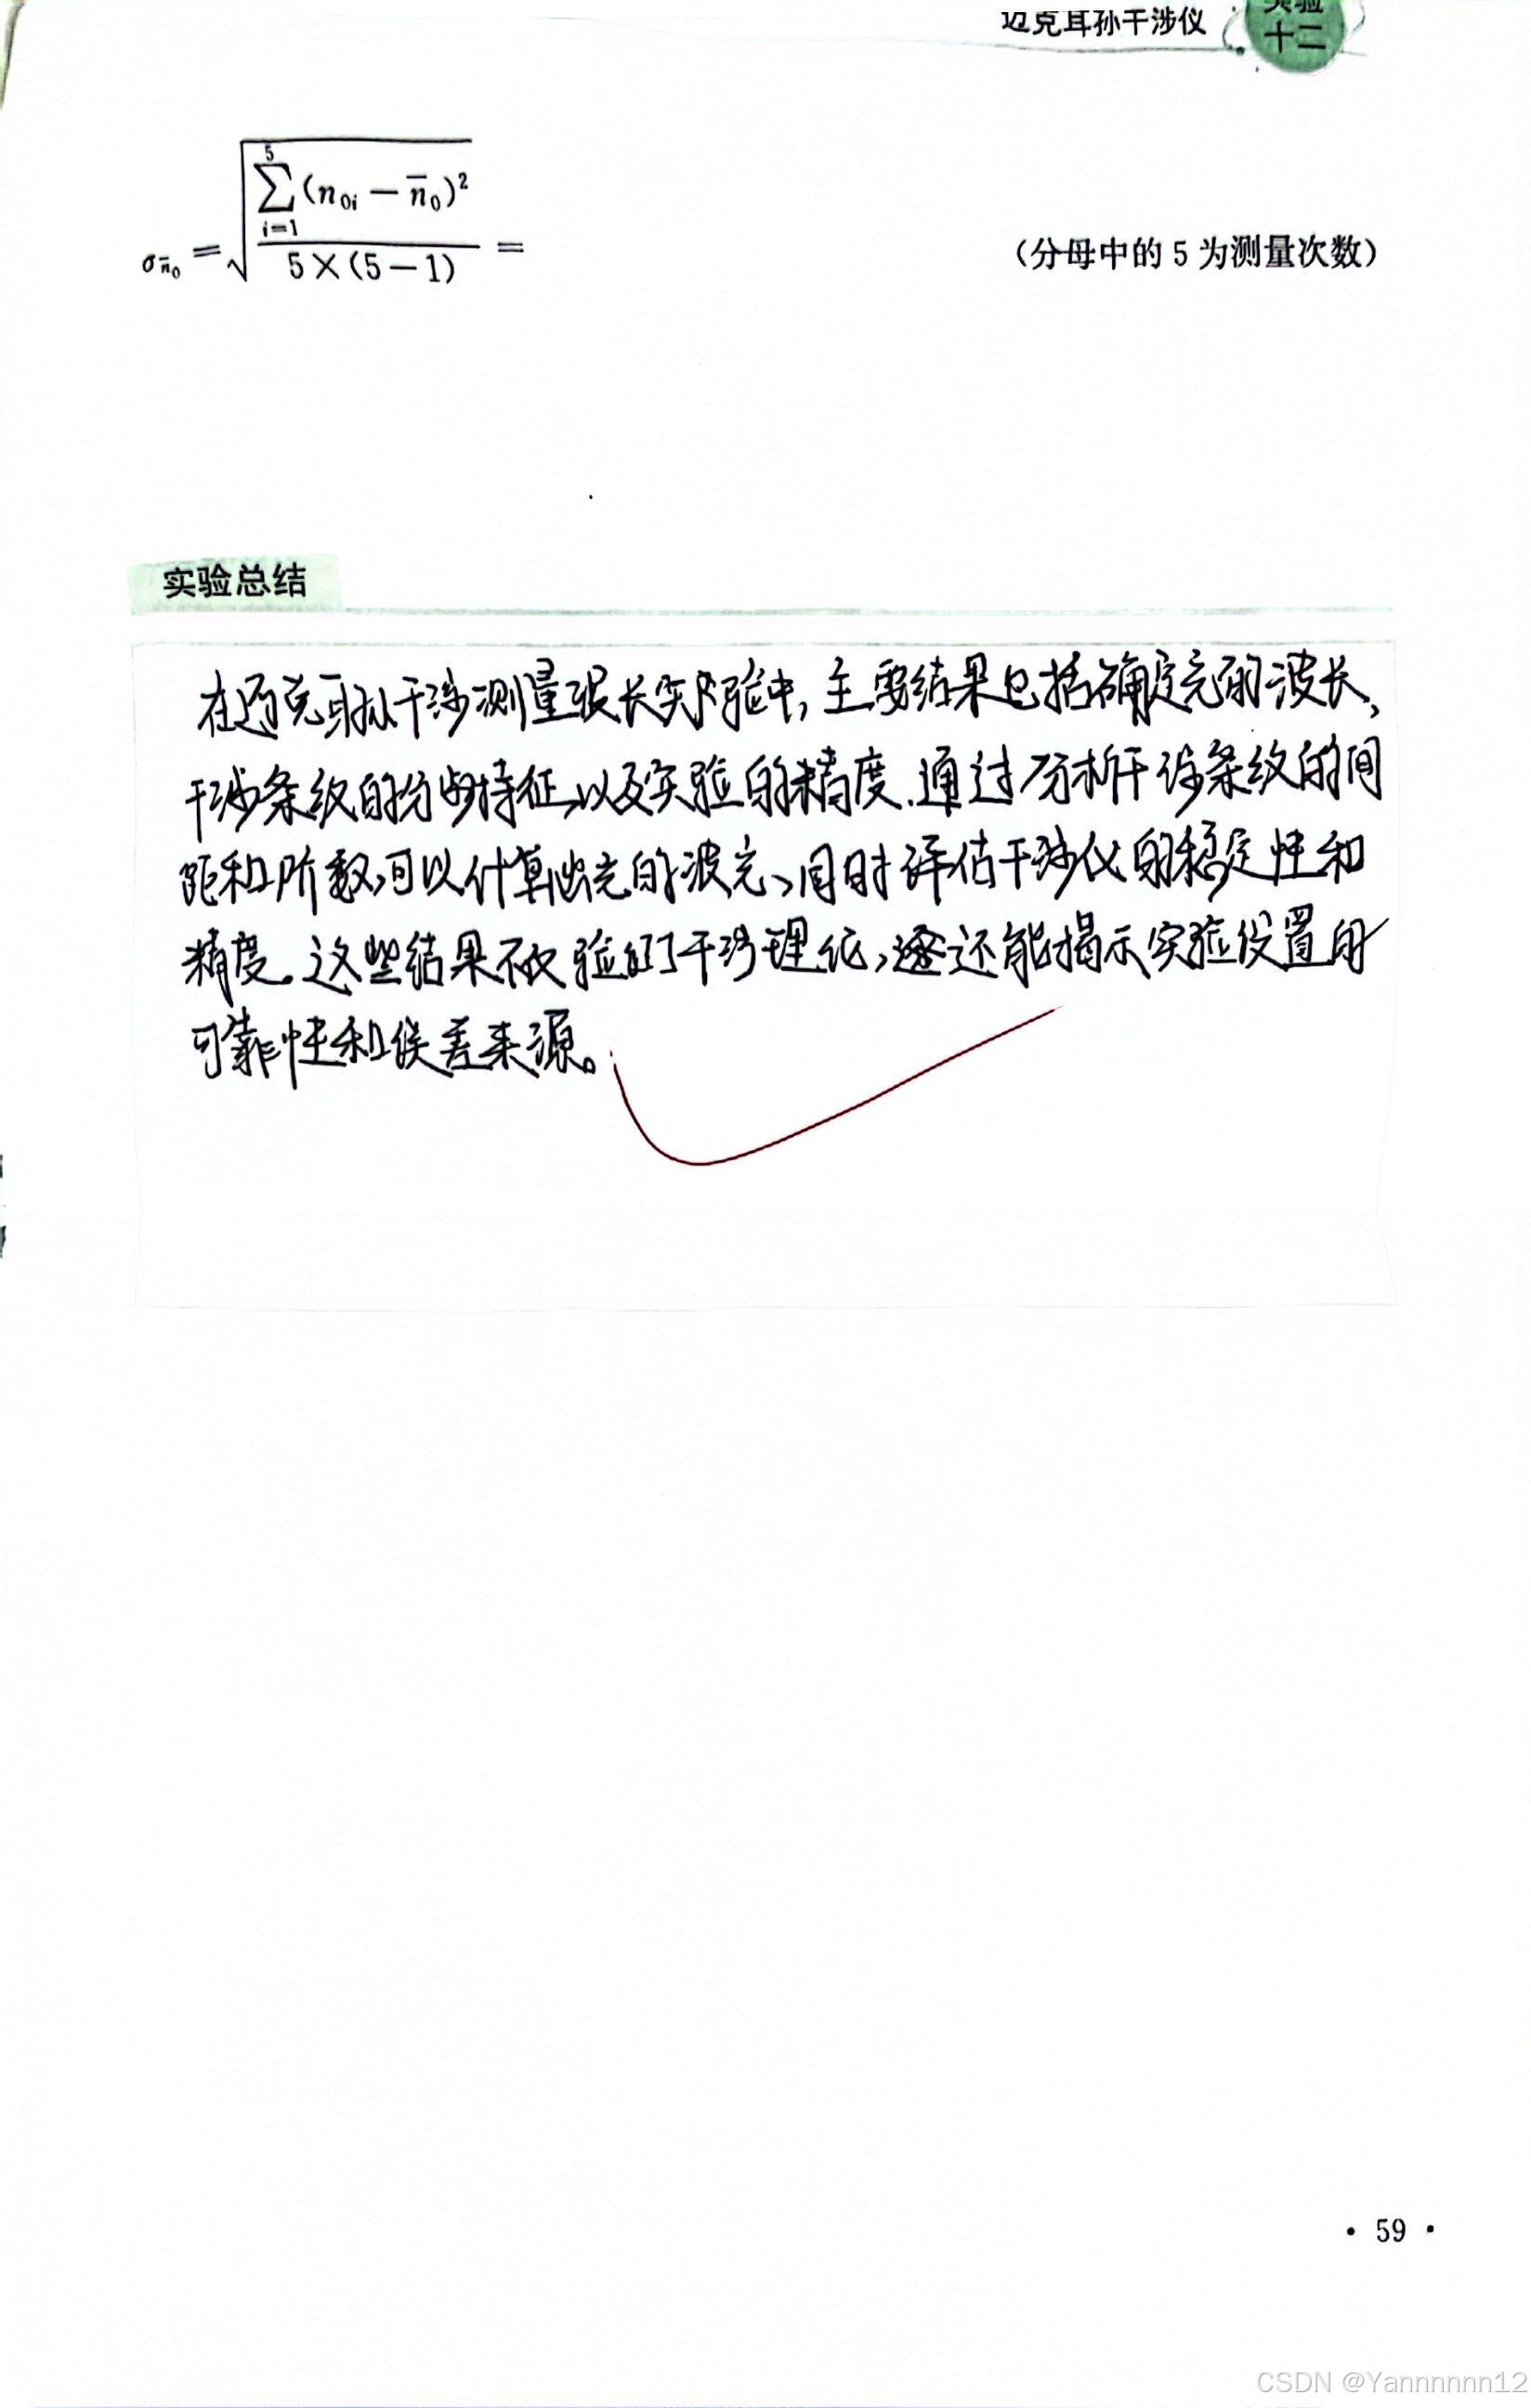 迈克耳孙干涉仪
实验
十二
σn̄₀ = √(∑(i=1→5)(n₀ᵢ − n̄₀)² / 5×(5−1)) =
(分母中的 5 为测量次数)
实验总结
在迈克耳孙干涉测量波长实验中,主要结果包括确定光的波长,
干涉条纹的分布特征,以及实验的精度.通过分析干涉条纹的间
距和阶数,可以计算出光的波长、同时评估干涉仪的稳定性和
精度。这些结果不仅验证了干涉理论,还能揭示实验设置的
可靠性和误差来源。
· 59 ·
CSDN @Yannnnnn12